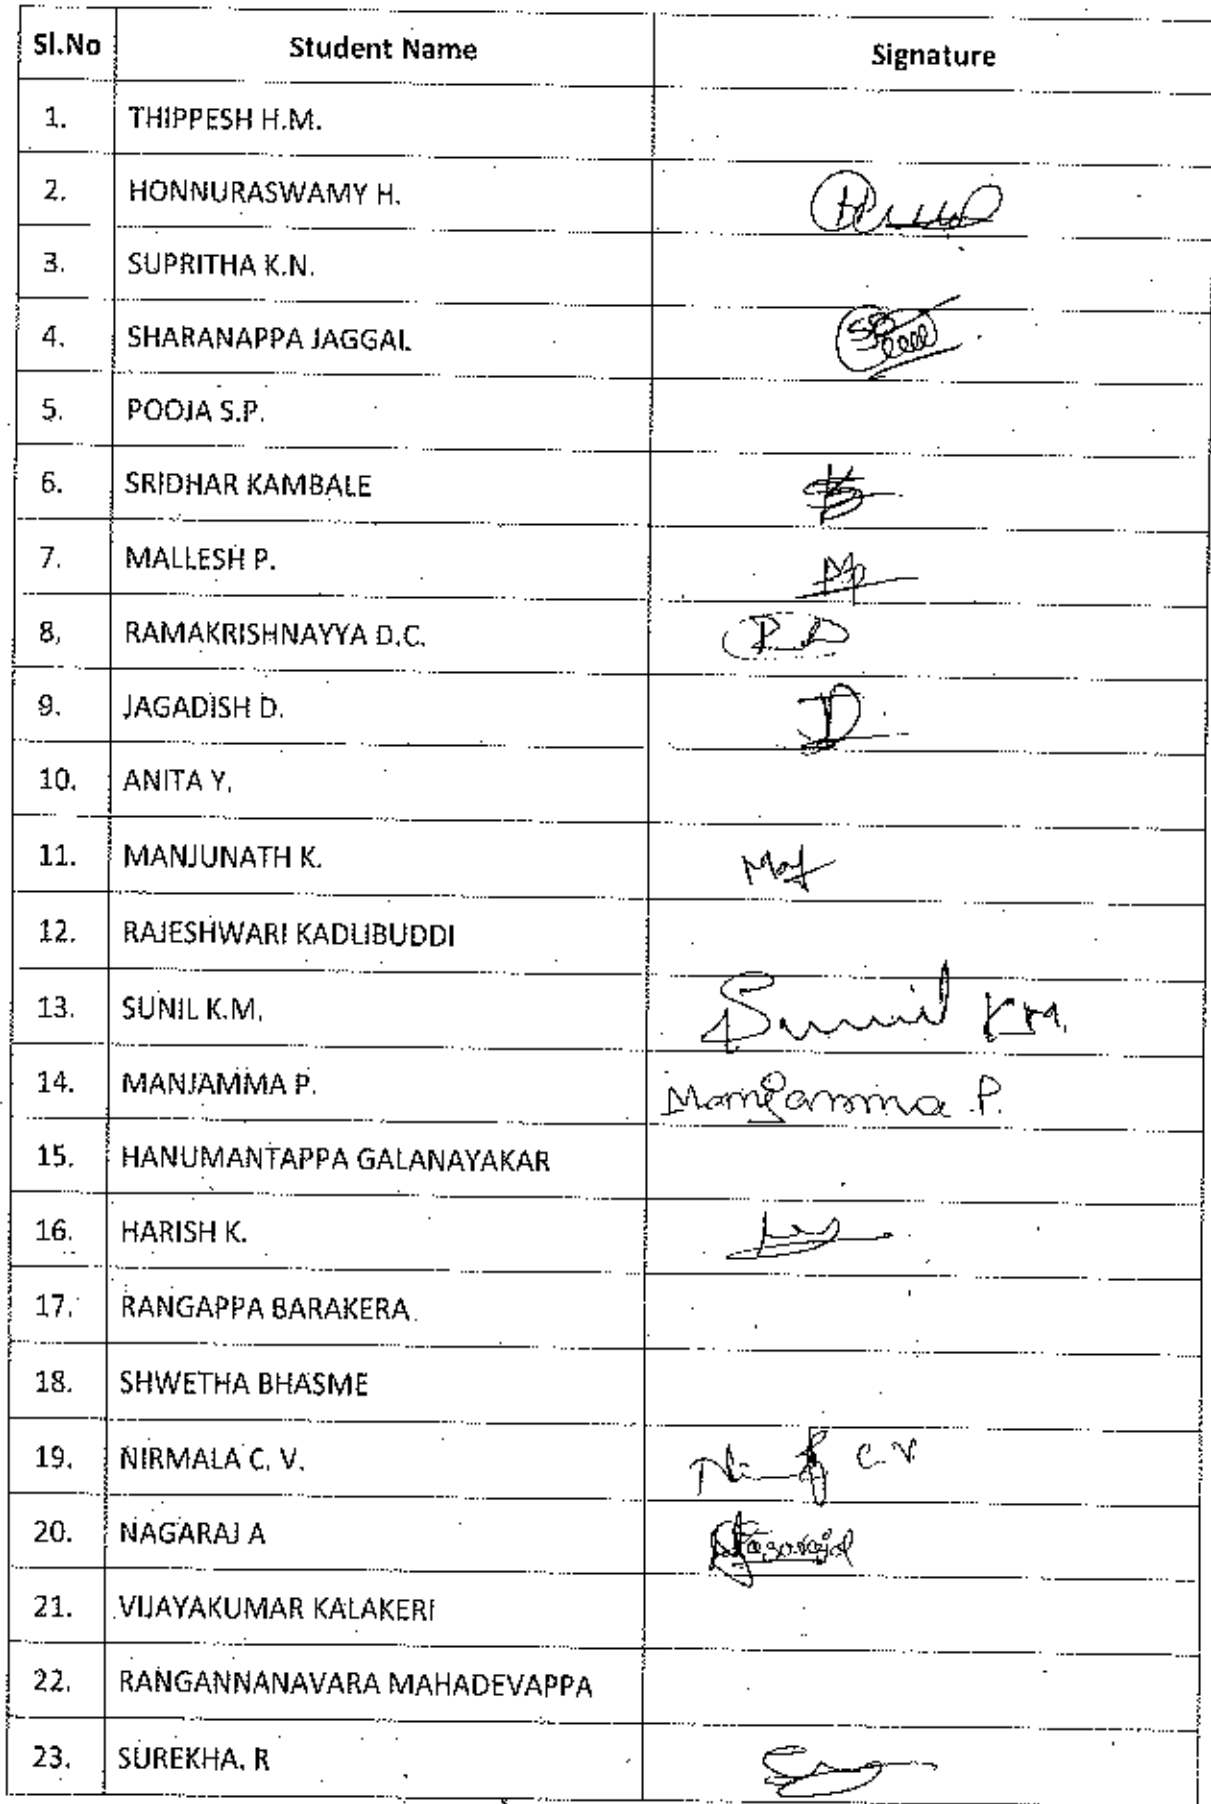 Sl.No Student Name Signature
1. THIPPESH H.M.
2. HONNURASWAMY H.
3. SUPRITHA K.N.
4. SHARANAPPA JAGGAL
5. POOJA S.P.
6. SRIDHAR KAMBALE
7. MALLESH P.
8. RAMAKRISHNAYYA D.C.
9. JAGADISH D.
10. ANITA Y.
11. MANJUNATH K.
12. RAJESHWARI KADLIBUDDI
13. SUNIL K.M. Sunil K.M.
14. MANJAMMA P. Manjamma P.
15. HANUMANTAPPA GALANAYAKAR
16. HARISH K.
17. RANGAPPA BARAKERA
18. SHWETHA BHASME
19. NIRMALA C. V. C.V.
20. NAGARAJ A
21. VIJAYAKUMAR KALAKERI
22. RANGANNANAVARA MAHADEVAPPA
23. SUREKHA. R